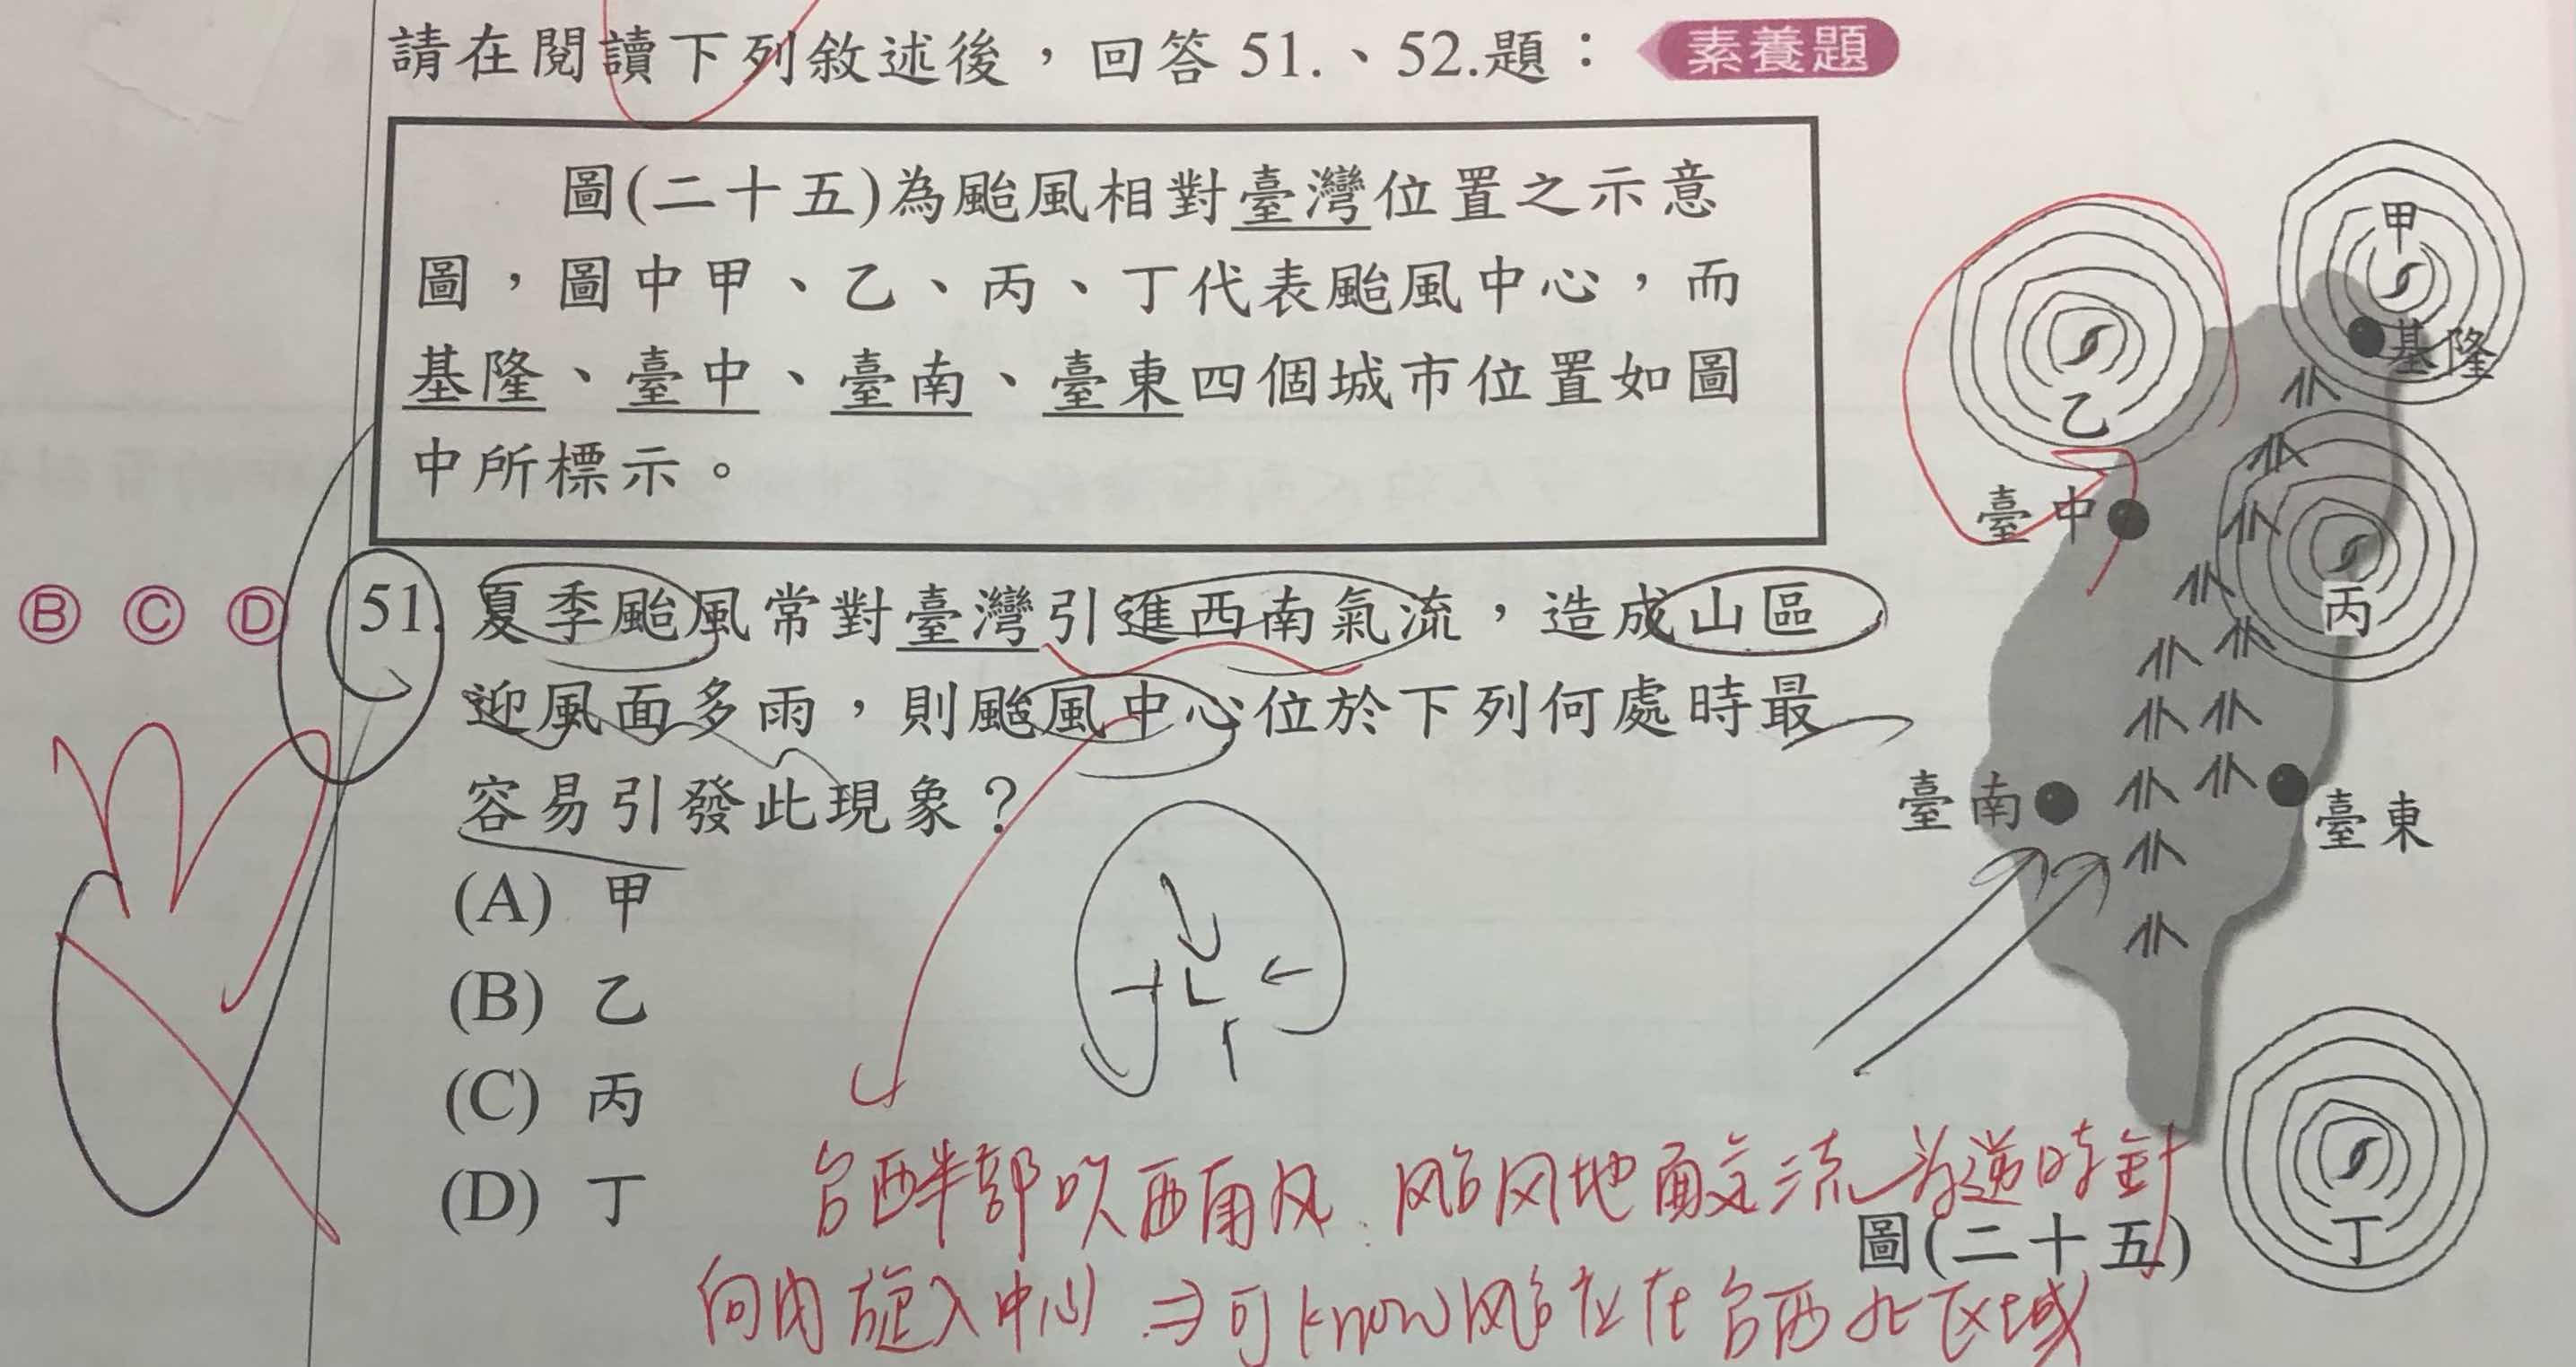 請在閱讀下列敘述後，回答 51.、52.題：
素養題
圖(二十五)為颱風相對臺灣位置之示意
圖，圖中甲、乙、丙、丁代表颱風中心，而
基隆、臺中、臺南、臺東四個城市位置如圖
中所標示。
甲
基隆
乙
臺中
丙
臺南
臺東
丁
圖(二十五)
Ⓑ Ⓒ Ⓓ
51. 夏季颱風常對臺灣引進西南氣流，造成山區
迎風面多雨，則颱風中心位於下列何處時最
容易引發此現象？
(A) 甲
(B) 乙
(C) 丙
(D) 丁
L
台西半部吹西南风
地面 流为逆時針
向内旋入中心 ⇒可know 位在台西北区域